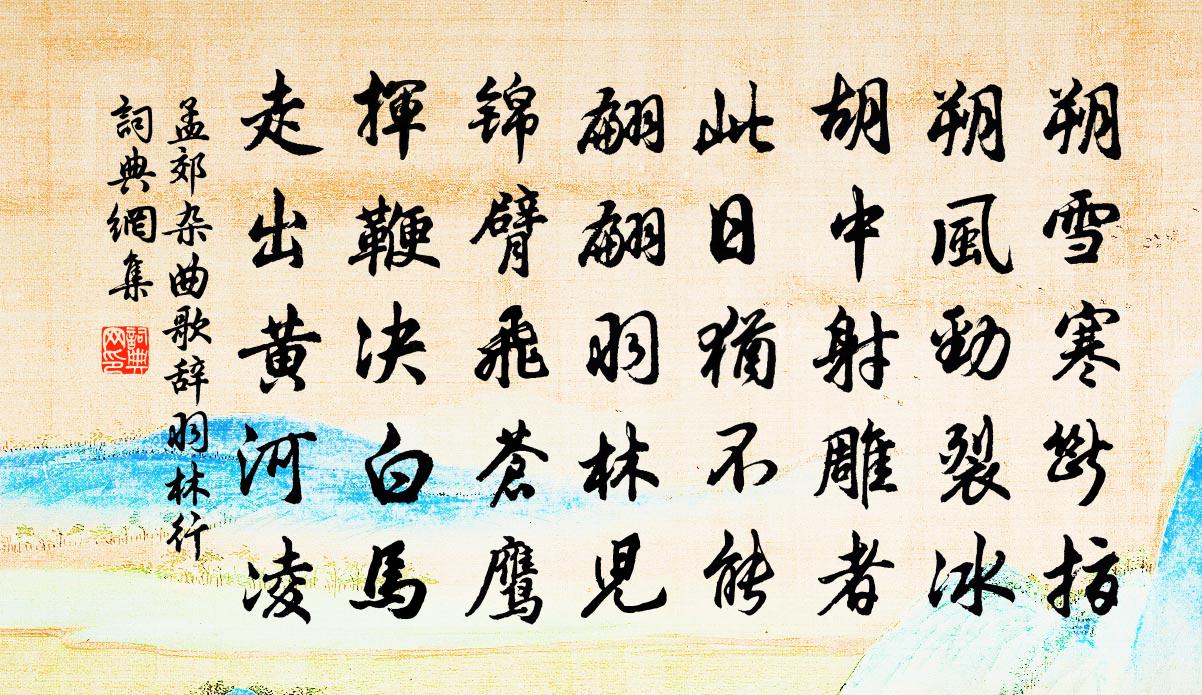 朔雪寒斷指
朔風勁裂冰
胡中射雕者
此日猶不能
翩翩羽林兒
锦臂飛蒼鹰
揮鞭决白馬
走出黄河凌
孟郊杂曲歌辞羽林行
詞典網集
詞典网印